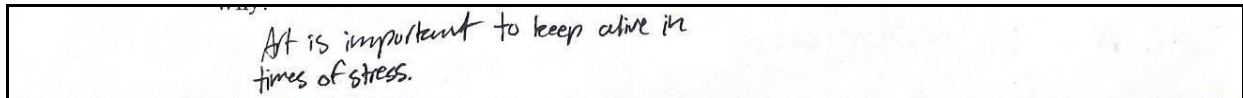 Why?
Art is important to keep alive in
times of stress.